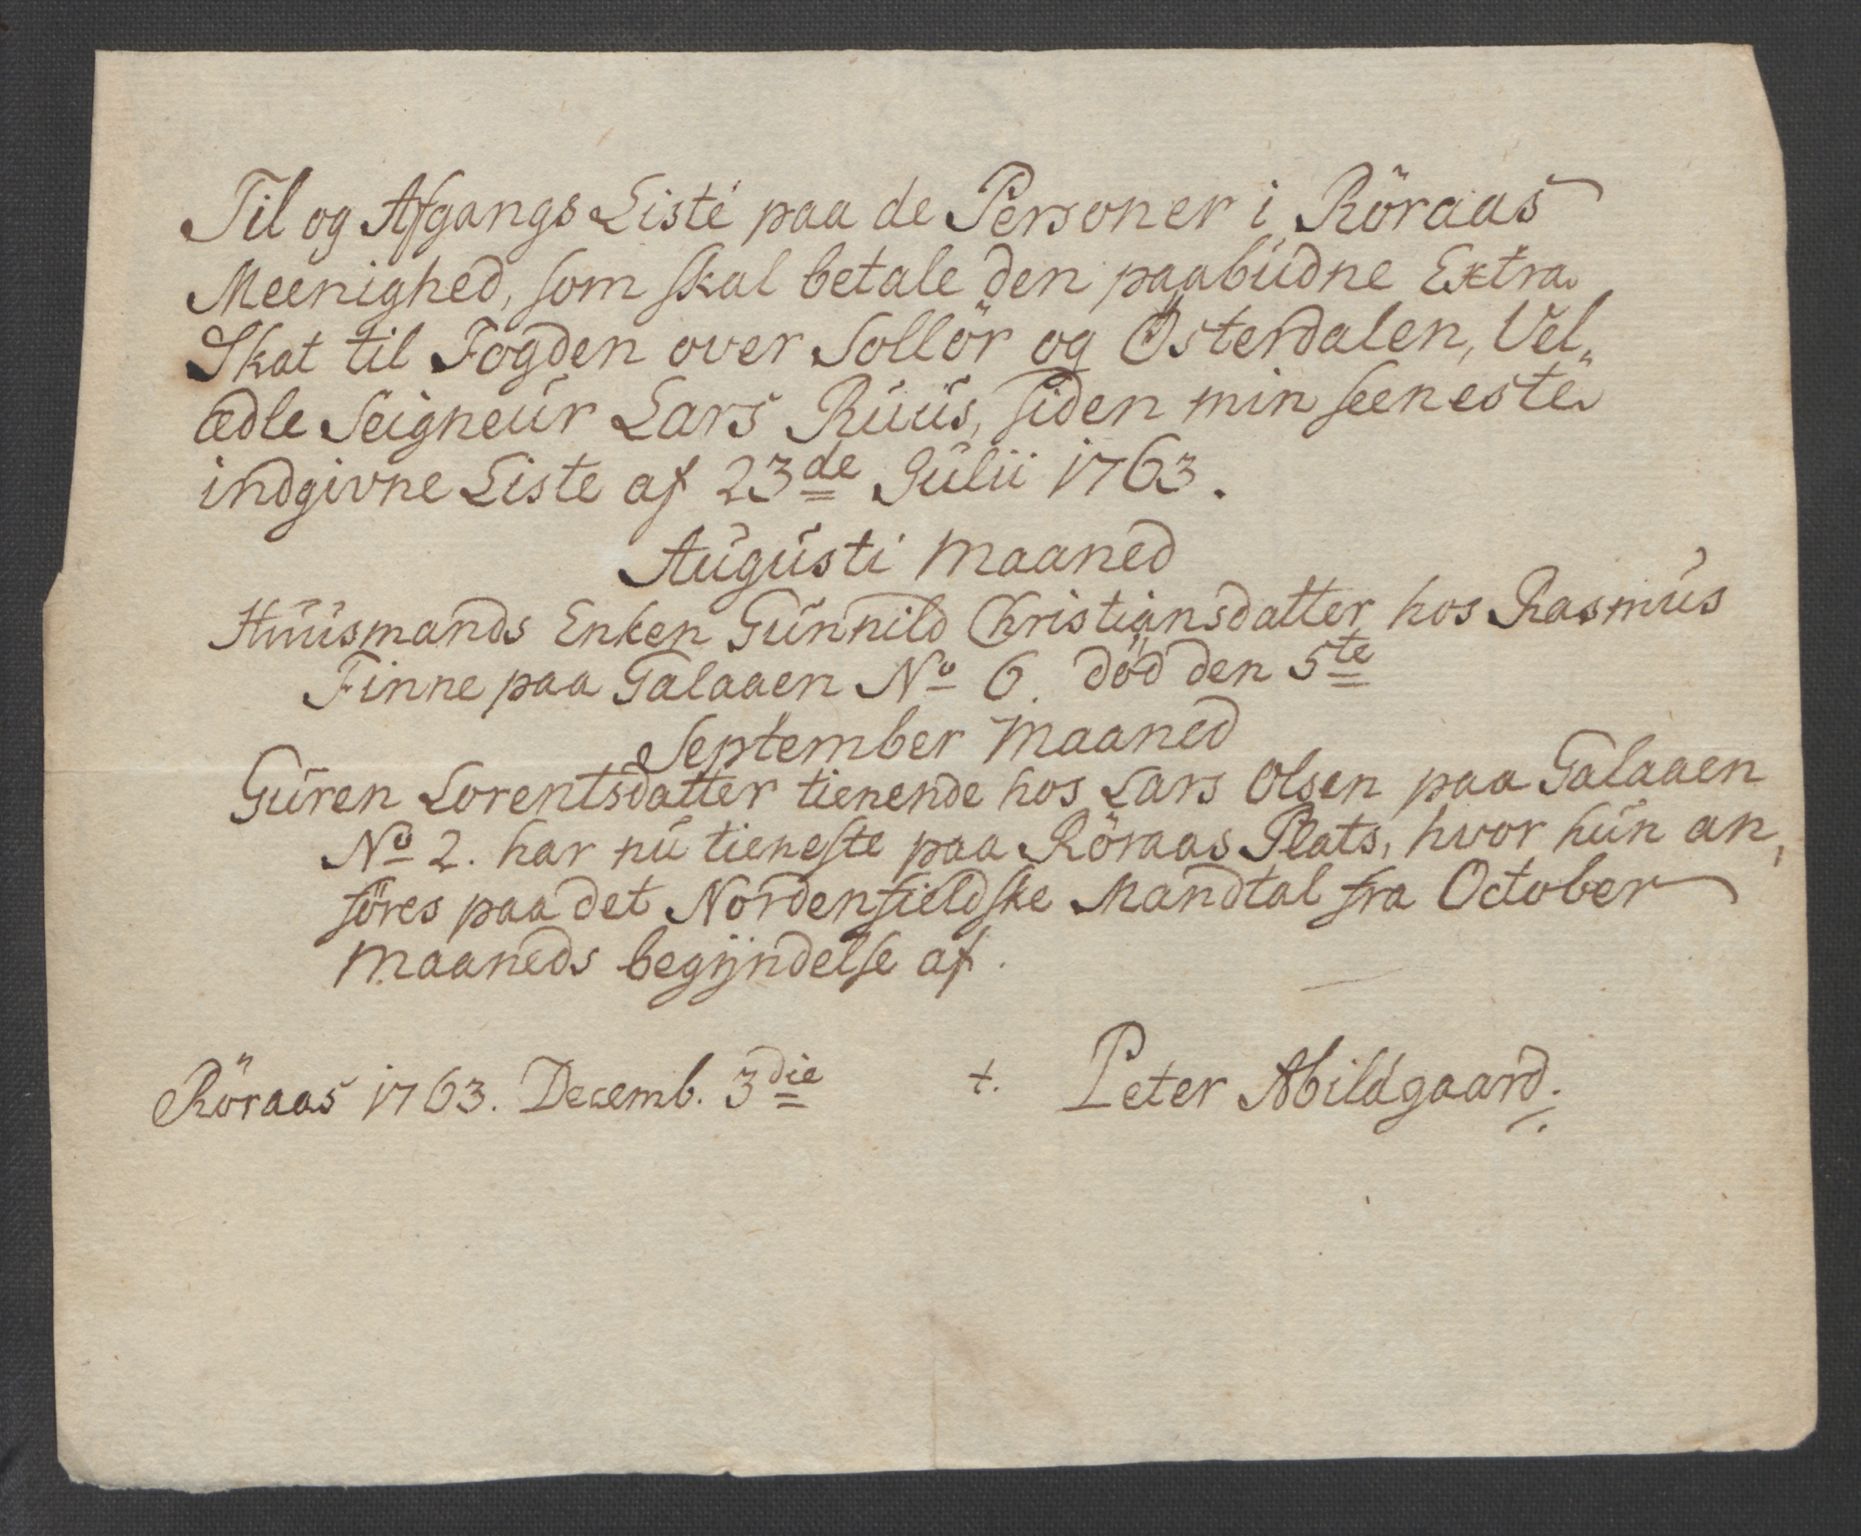 Til og Afgangs Liste paa de Personer i Röraas
Meenighed, som skal betale den paabudne Extra
Skat til Fogden over Sollör og Österdalen, Vel-
ædle Seigneur Lars Ruus, siden min seeneste
indgivne Liste af 23de Julii 1763.
Augusti Maaned
Huusmands Enken Gunnild Christiansdatter hos Rasmus
Finne paa Galaaen No 6. död den 5te
September Maaned
Guren Lorentsdatter tienende hos Lars Olsen paa Galaaen
No 2. har nu tieneste paa Röraas Plats, hvor hun an,
föres paa det Nordenfieldske Mandtal fra October
Maaneds begyndelse af.
Röraas 1763. Decemb. 3die t. Peter Abildgaard.